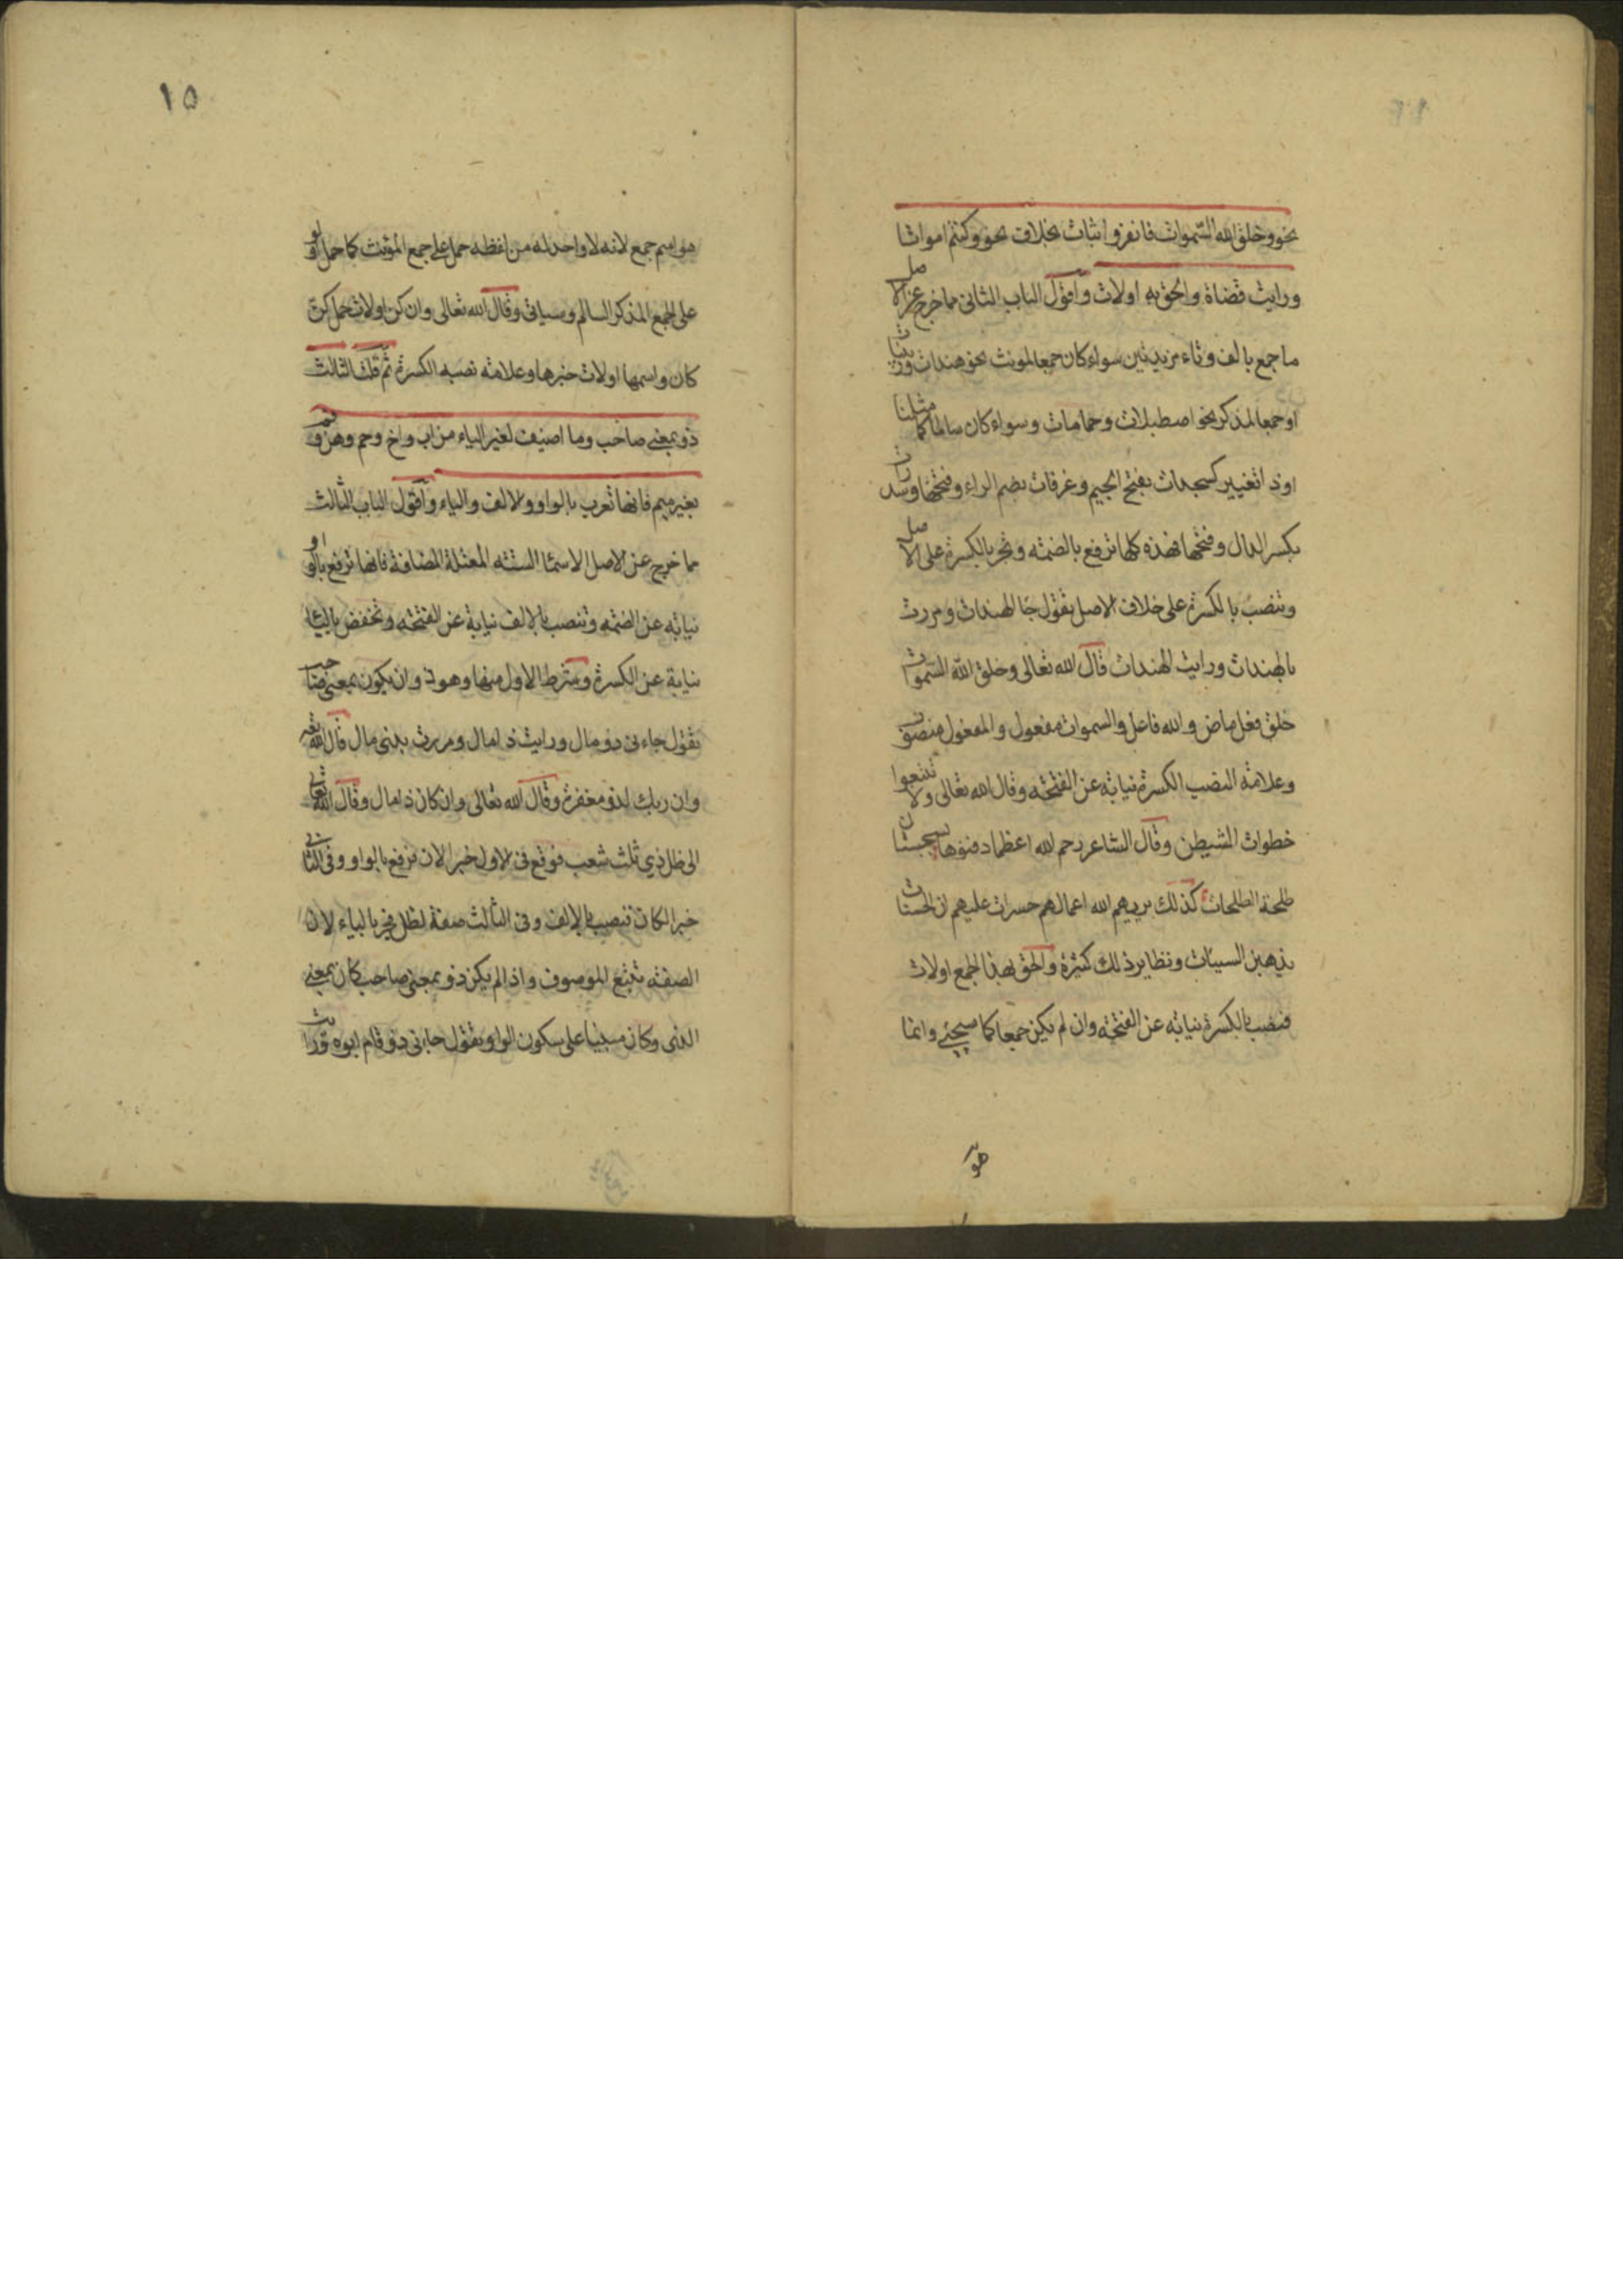 نحو وخلق الله السموات فانفروا ثبات بخلاف نحو وكنتم امواتا
ورايت قضاة والحق به اولات واقول الباب الثانى مما خرج عن الاصل
ما جمع بالف وتاء مزيدتين سواء كان جمعا لمونث نحو هندات وزينبات
او جمعا لمذكر نحو اصطبلات وحمامات وسواء كان سالما كما مثلنا
او ذا تغيير كسجدات بفتح الجيم وغرفات بضم الراء وفتحها وسدرات
بكسر الدال وفتحها فهذه كلها ترفع بالضمة وتجر بالكسرة على الاصل
وتنصب بالكسرة على خلاف الاصل تقول جا الهندات ومررت
بالهندات ورايت الهندات قال الله تعالى وخلق الله السموات
خلق فعل ماض والله فاعل والسموات مفعول والمفعول منصوب
وعلامة النصب الكسرة نيابة عن الفتحة وقال الله تعالى ولا تتبعوا
خطوات الشيطن وقال الشاعر رحم الله اعظما دفنوها بسجستان
طلحة الطلحات كذلك يريهم الله اعمالهم حسرات عليهم ان الحسنات
يذهبن السيئات ونظاير ذلك كثيرة والحق بهذا الجمع اولات
فنصب بالكسرة نيابة عن الفتحة وان لم يكن جمعا كما سيجئ وانما
هو
١٥
هو اسم جمع لانه لا واحد له من لفظه حمل على جمع المؤنث كما حمل اولو
على الجمع المذكر السالم وسياتى وقال الله تعالى وان كن اولات حمل كن
كان واسمها اولات خبرها وعلامة نصبه الكسرة ثم قلت الثالث
ذو بمعنى صاحب وما اضيف لغير الياء من اب واخ وحم وهن وفم
بغير ميم فانها تعرب بالواو والالف والياء واقول الباب الثالث
مما خرج عن الاصل الاسما الستة المعتلة المضافة فانها ترفع بالواو
نيابة عن الضمة وتنصب بالالف نيابة عن الفتحة وتخفض بالياء
نيابة عن الكسرة وشرط الاول منها وهو ذو ان يكون بمعنى صاحب
تقول جاءنى ذو مال ورايت ذا مال ومررت بذى مال قال الله تعه
وان ربك لذو مغفرة وقال الله تعالى وان كان ذا مال وقال الله تعالى
الى ظل ذي ثلث شعب فوقع فى الاول خبرا لان فرفع بالواو وفى الثانى
خبرا لكان فنصب بالالف وفى الثالث صفة لظل فجر بالياء لان
الصفة تتبع الموصوف واذا لم يكن ذو بمعنى صاحب كان بمعنى
الذى وكان مبنيا على سكون الواو تقول جاءنى ذو قام ابوه ورايت